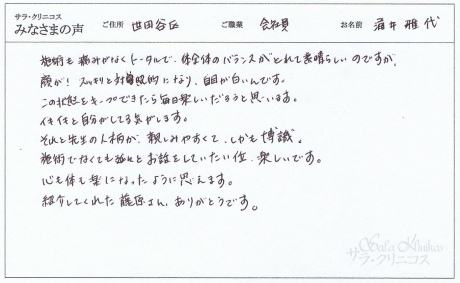 サラ・クリニコス
みなさまの声 ご住所 世田谷区 ご職業 会社員 お名前 涌井 雅代
施術も痛みがなくトータルで、体全体のバランスがとれて素晴らしいのですが、
顔が！スッキリと対照的になり、目が白いんです。
この状態をキープできたら毎日楽しいだろうと思います。
イキイキと自分がしてる気がします。
それと先生の人柄が、親しみやすくて、しかも博識。
施術でなくてもずっとお話をしていたい位、楽しいです。
心も体も楽になったように思えます。
紹介してくれた藤原さん、ありがとうです。
Sala Klinikos
サラ・クリニコス